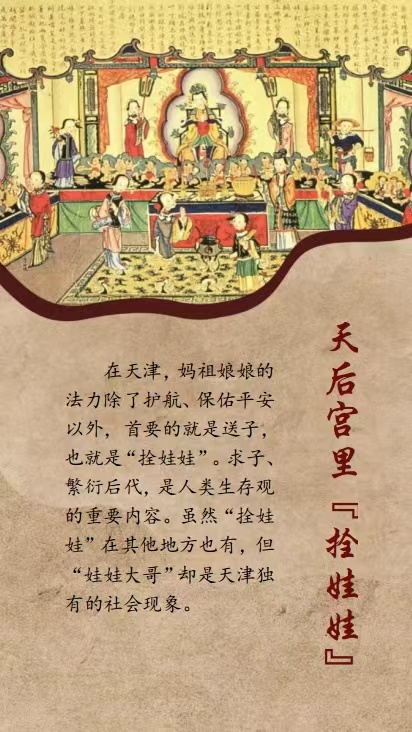 天后宫里『拴娃娃』
在天津，妈祖娘娘的
法力除了护航、保佑平安
以外，首要的就是送子，
也就是“拴娃娃”。求子、
繁衍后代，是人类生存观
的重要内容。虽然“拴娃
娃”在其他地方也有，但
“娃娃大哥”却是天津独
有的社会现象。